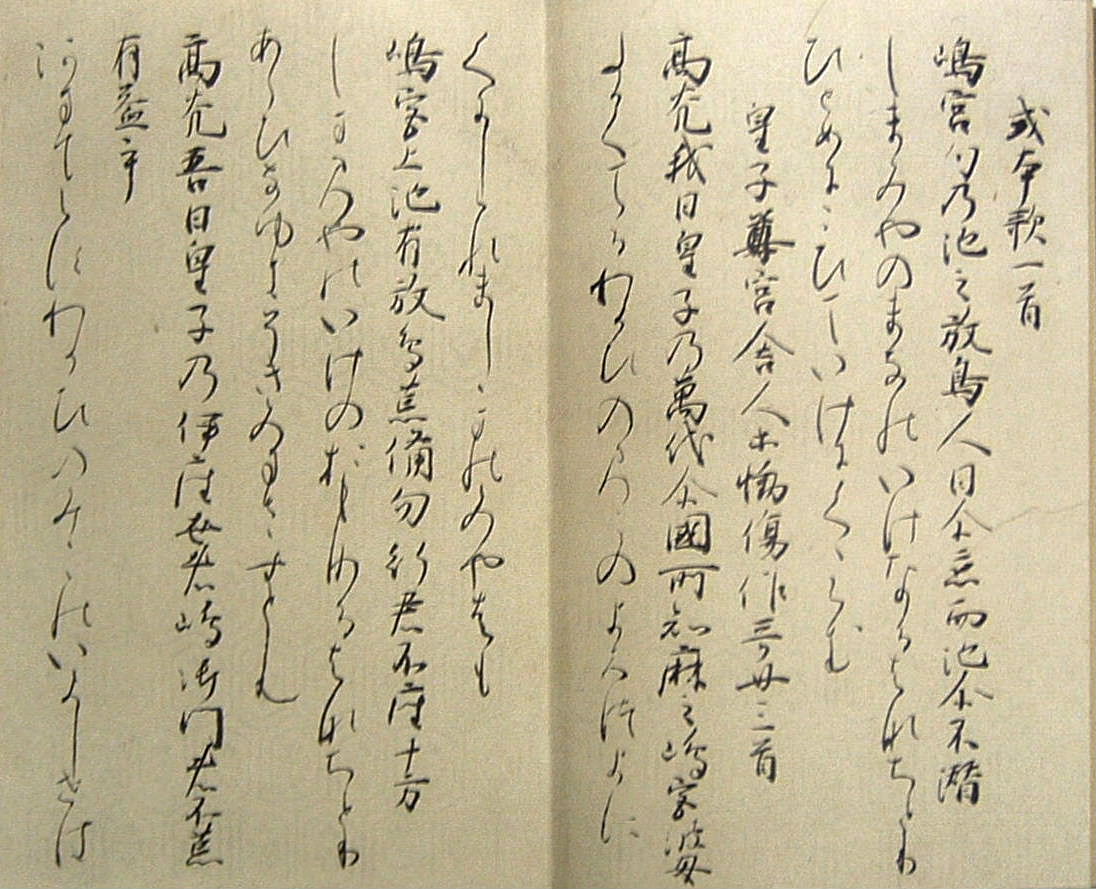 或本歌一首
嶋宮勾乃池之放鳥人目尓恋而池尓不潜
しまみやのまなのいけなるはなちとり
ひとめにこひていけにくゝらむ
皇子尊宮舎人等慟傷作哥廿三首
高光我日皇子乃萬代尓國所知麻之嶋宮波母
たかくてるわかひのみこのよろつよに
くにしれましゝしまのみやはも
嶋宮上池有放鳥荒備勿行君不座十方
しまのみやのいけのおもなるはなちとり
あらひなゆきそきみまさすとも
高光吾日皇子乃伊座世者嶋御門者不荒
有益乎
たかてらすわかひのみこのいましせは